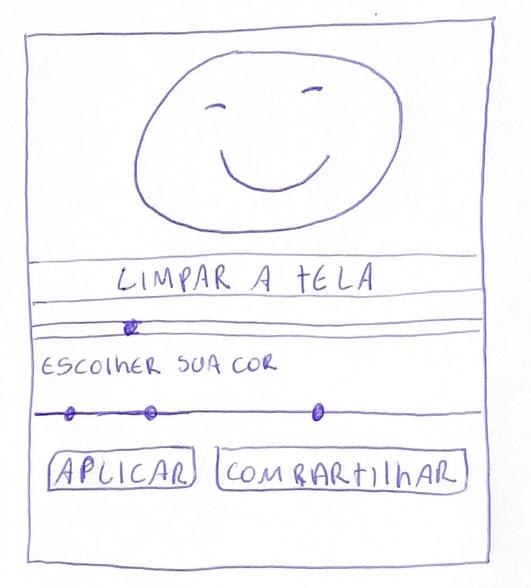 LIMPAR A tELA
ESCOlhER SUA COR
APLICAR COMPARtIlhAR